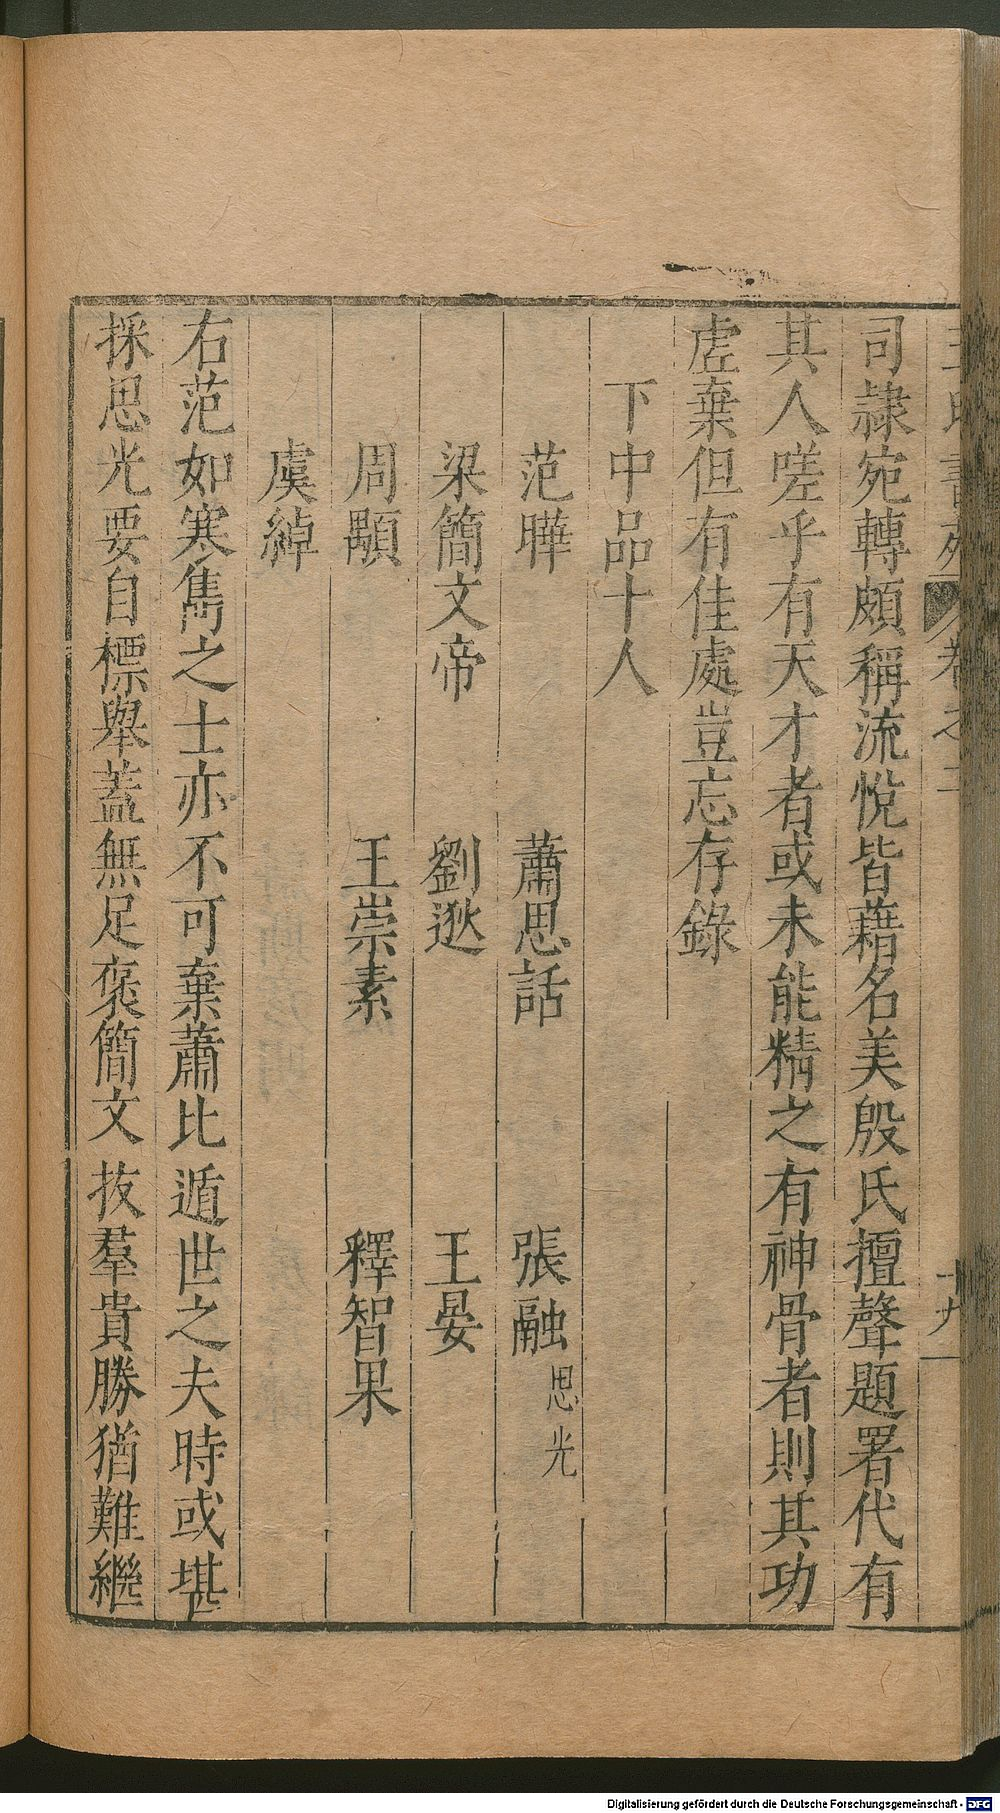 司隷宛轉頗稱流悅皆藉名美殷氏擅聲題署代有
其人嗟乎有天才者或未能精之有神骨者則其功
虗棄但有佳處豈忘存錄
下中品十人
范曄 蕭思話 張融思光
梁簡文帝 劉逖 王晏
周顒 王崇素 釋智果
虞綽
右范如寒雋之士亦不可棄蕭比遁世之夫時或堪
採思光要自標舉蓋無足褒簡文拔羣貴勝猶難繼
卷之二
十九
Digitalisierung gefördert durch die Deutsche Forschungsgemeinschaft - DFG